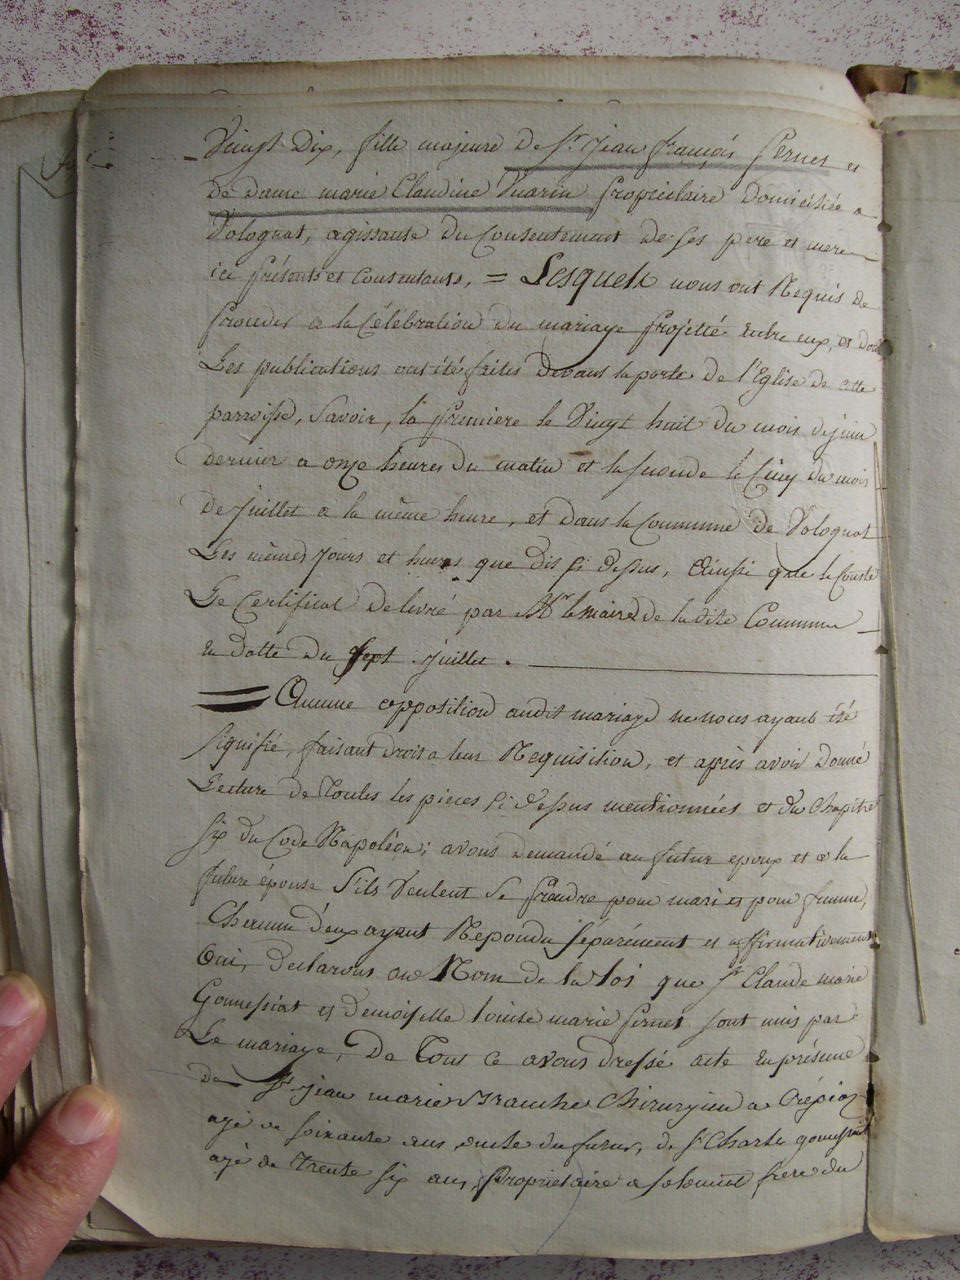 Vingt Dix, fille majeure De Sr. Jean françois Pernet et
De Dame marie Claudine Vuarin propriétaire Domiciliée a
Volognat, agissante Du Consentement De Ses pere et mere
ici présents et consentants, = Lesquels nous ont Requis De
proceder a la Célébration du mariage projetté entre eux, et dont
Les publications ont été faites Devant la porte De l'Eglise De cette
parroisse, Savoir, la premiere le Vingt huit Du mois De juin
dernier a onze heures Du matin et la seconde le Cinq Du mois
De Juillet a la même heure, et dans la Commune De Volognat
Les mêmes Jours et heures que dit ci Dessus, Ainsi que le Constate
Le Certificat Delivré par Mr. le maire de la dite Commune
en datte Du sept Juillet.
= Aucune opposition audit mariage ne nous ayant été
signifié, faisant droit a leur Requisition, et après avoir Donné
Lecture de Toutes les pieces ci Dessus mentionnées et du Chapitre
Six du Code Napoléon; avons Demandé au futur epoux et a la
future épouse S'ils Veulent Se Prendre pour mari et pour femme,
Chacun d'eux ayant Repondu Séparément et affirmativement
Oui, declarons au Nom de la Loi que Sr Claude marie
Gonnessiat et Demoiselle louise marie Pernet sont unis par
Le mariage, De Tout Ce avons Dressé acte en présence
de Sr. Jean marie Chirurgien a
agé de Soixante ans, oncle du futur, de Sr Charles gonnessiat
agé de Trente Six ans, Propriétaire a frere du